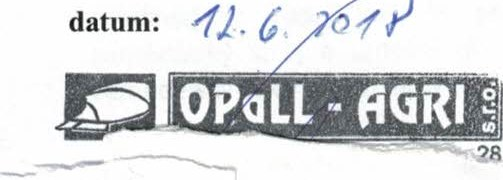 datum: 12. 6. 2018
OPaLL - AGRI s.r.o.
28